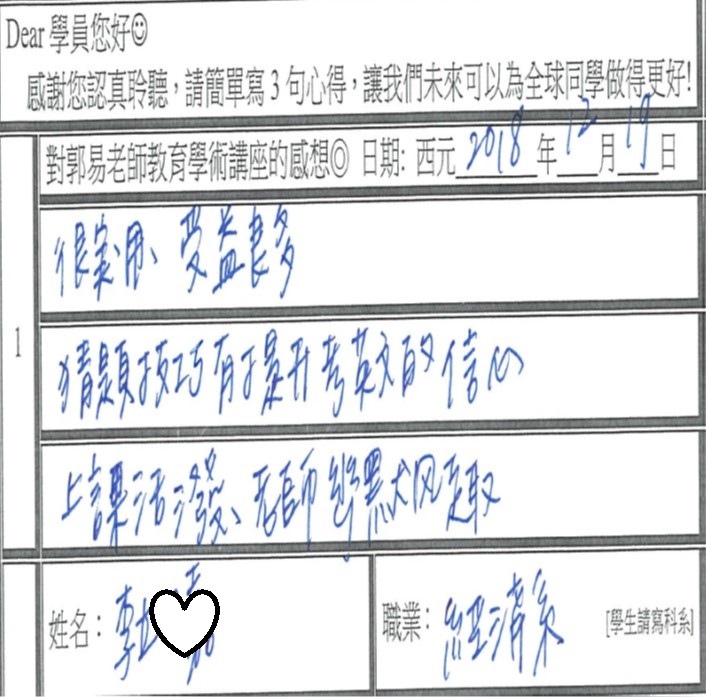 Dear 學員您好☺
感謝您認真聆聽，請簡單寫 3 句心得，讓我們未來可以為全球同學做得更好!
1
對郭易老師教育學術講座的感想◎ 日期: 西元 2018 年 12 月 19 日
很實用、受益良多
猜題技巧有提升考英文的信心
上課活潑、老師幽默风趣
姓名：
職業： 經濟系 [學生請寫科系]